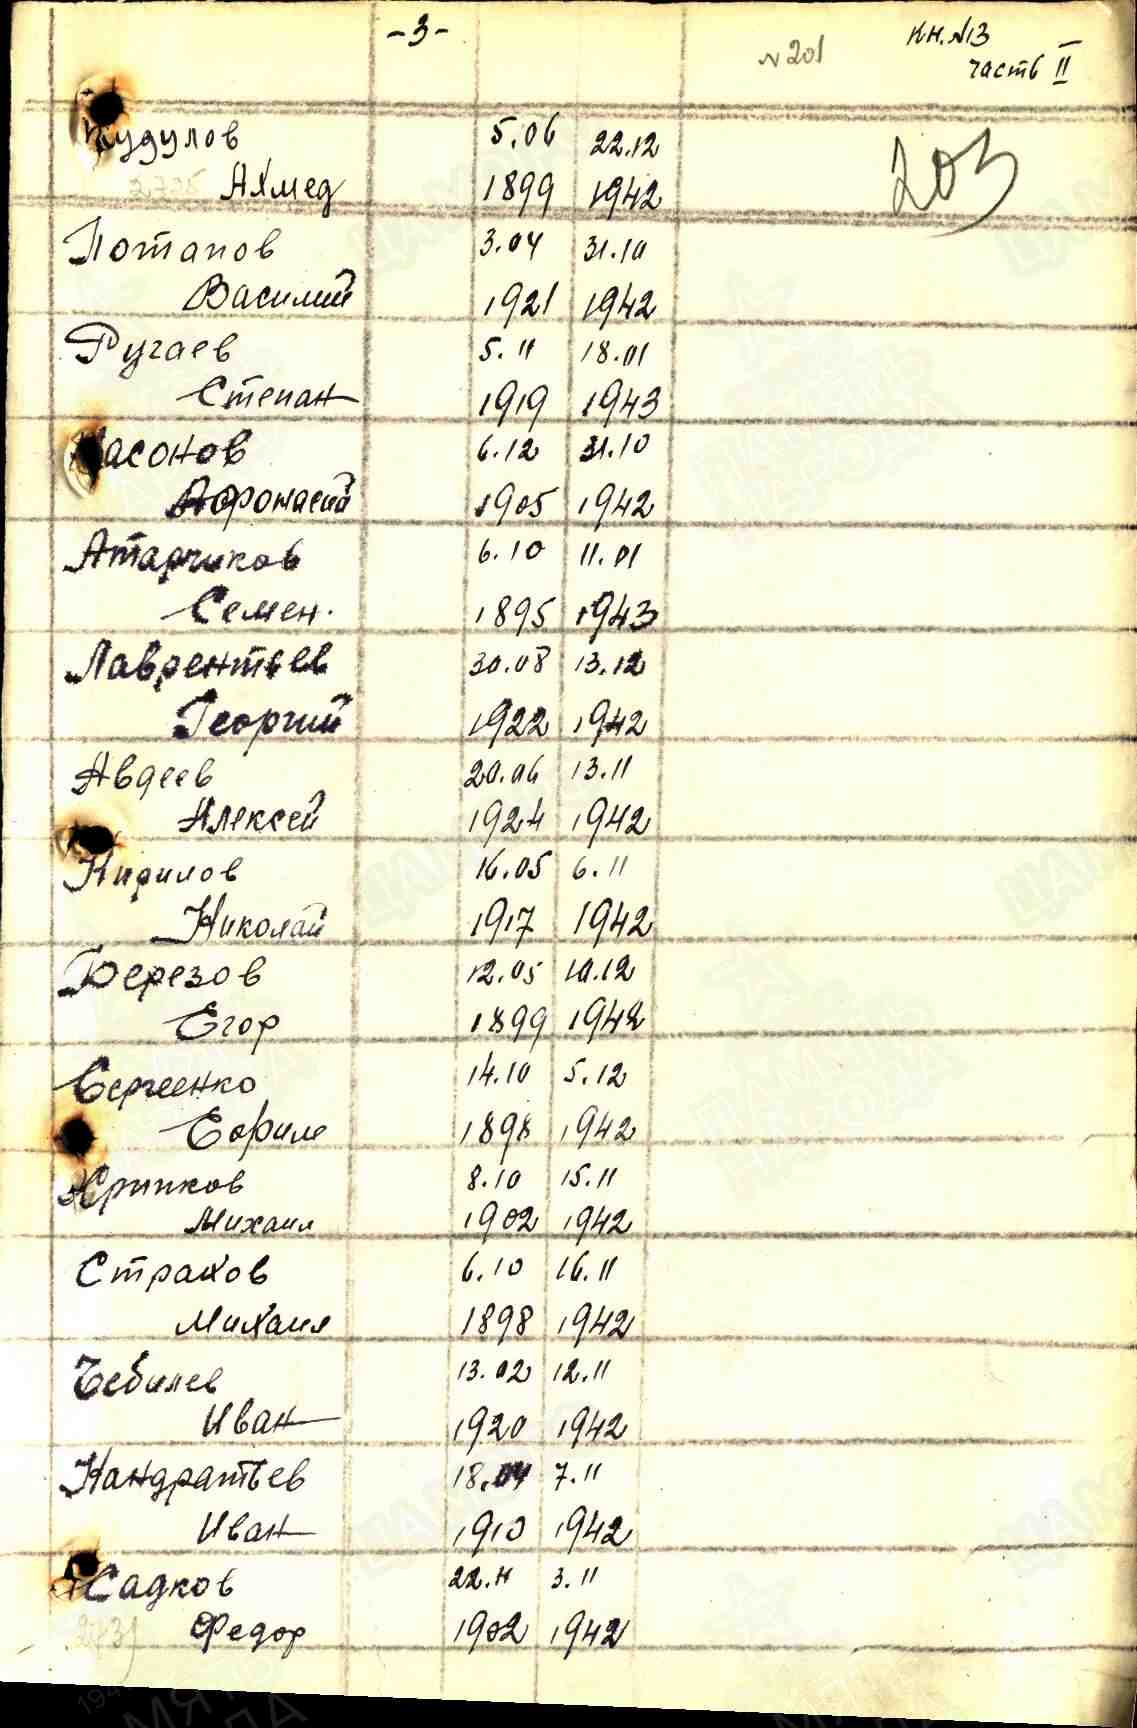 -3-
№201
кн. №13
часть II
203
Кудулов 5.06 22.12
Ахмед 1899 1942
Потапов 3.04 31.10
Василий 1921 1942
Ругаев 5.11 18.01
Степан 1919 1943
асонов 6.12 31.10
Афонасий 1905 1942
Атарчиков 6.10 11.01
Семен. 1895 1943
Лаврентьев 30.08 13.12
Георгий 1922 1942
Авдеев 20.06 13.11
Алексей 1924 1942
Кирилов 16.05 6.11
Николай 1917 1942
Березов 12.05 10.12
Егор 1899 1942
Сергеенко 14.10 5.12
Ефим 1898 1942
Крипков 8.10 15.11
Михаил 1902 1942
Страхов 6.10 16.11
Михаил 1898 1942
Чебилев 13.02 12.11
Иван 1920 1942
Кандратьев 18.04 7.11
Иван 1910 1942
Садков 22.11 3.11
Федор 1902 1942